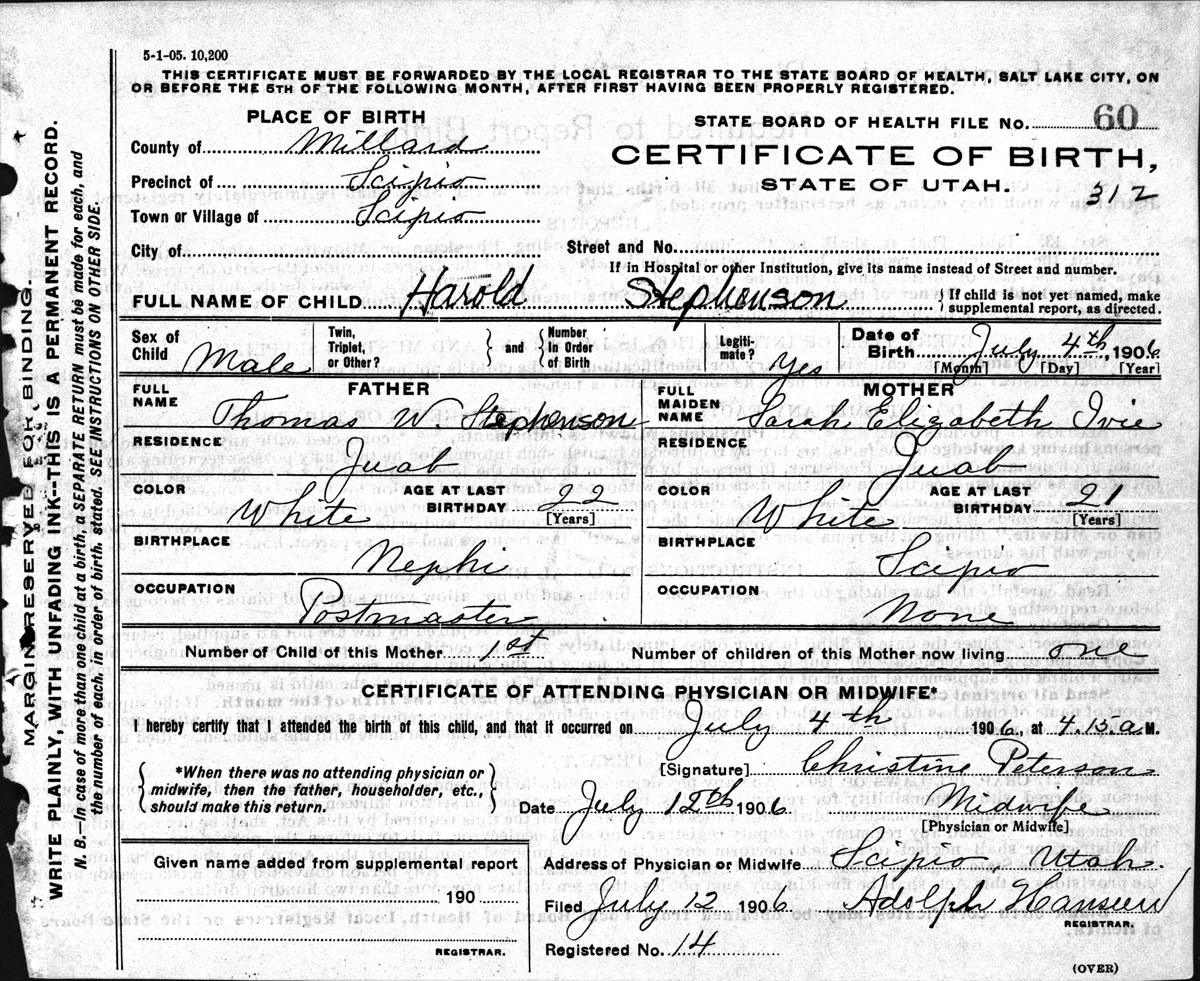 5-1-05. 10,200
THIS CERTIFICATE MUST BE FORWARDED BY THE LOCAL REGISTRAR TO THE STATE BOARD OF HEALTH, SALT LAKE CITY, ON
OR BEFORE THE 5TH OF THE FOLLOWING MONTH, AFTER FIRST HAVING BEEN PROPERLY REGISTERED.
PLACE OF BIRTH
STATE BOARD OF HEALTH FILE No. 60
County of Millard
CERTIFICATE OF BIRTH,
Precinct of Scipio
STATE OF UTAH.
312
Town or Village of Scipio
City of
Street and No.
If in Hospital or other Institution, give its name instead of Street and number.
FULL NAME OF CHILD Harold Stephenson
{ If child is not yet named, make
supplemental report, as directed.
Sex of Child Male
Twin, Triplet, or Other?
} and {
Number In Order of Birth
Legiti- mate? Yes
Date of Birth July 4th, 1906
[Month] [Day] [Year]
FATHER
FULL NAME Thomas W. Stephenson
MOTHER
FULL MAIDEN NAME Sarah Elizabeth Ivie
RESIDENCE Juab
RESIDENCE Juab
COLOR White
AGE AT LAST BIRTHDAY 22 [Years]
COLOR White
AGE AT LAST BIRTHDAY 21 [Years]
BIRTHPLACE Nephi
BIRTHPLACE Scipio
OCCUPATION Postmaster
OCCUPATION None
Number of Child of this Mother 1st
Number of children of this Mother now living one
CERTIFICATE OF ATTENDING PHYSICIAN OR MIDWIFE*
I hereby certify that I attended the birth of this child, and that it occurred on July 4th 1906, at 4.15.a M.
{ *When there was no attending physician or
midwife, then the father, householder, etc.,
should make this return. }
[Signature] Christine Peterson
Date July 12th 1906
Midwife
[Physician or Midwife]
Given name added from supplemental report
190
REGISTRAR.
Address of Physician or Midwife Scipio Utah.
Filed July 12 1906
Adolph Hanseen
REGISTRAR.
Registered No. 14
(OVER)
MARGIN RESERVED FOR BINDING.
WRITE PLAINLY, WITH UNFADING INK--THIS IS A PERMANENT RECORD.
N. B.—In case of more than one child at a birth, a SEPARATE RETURN must be made for each, and
the number of each, in order of birth, stated. SEE INSTRUCTIONS ON OTHER SIDE.